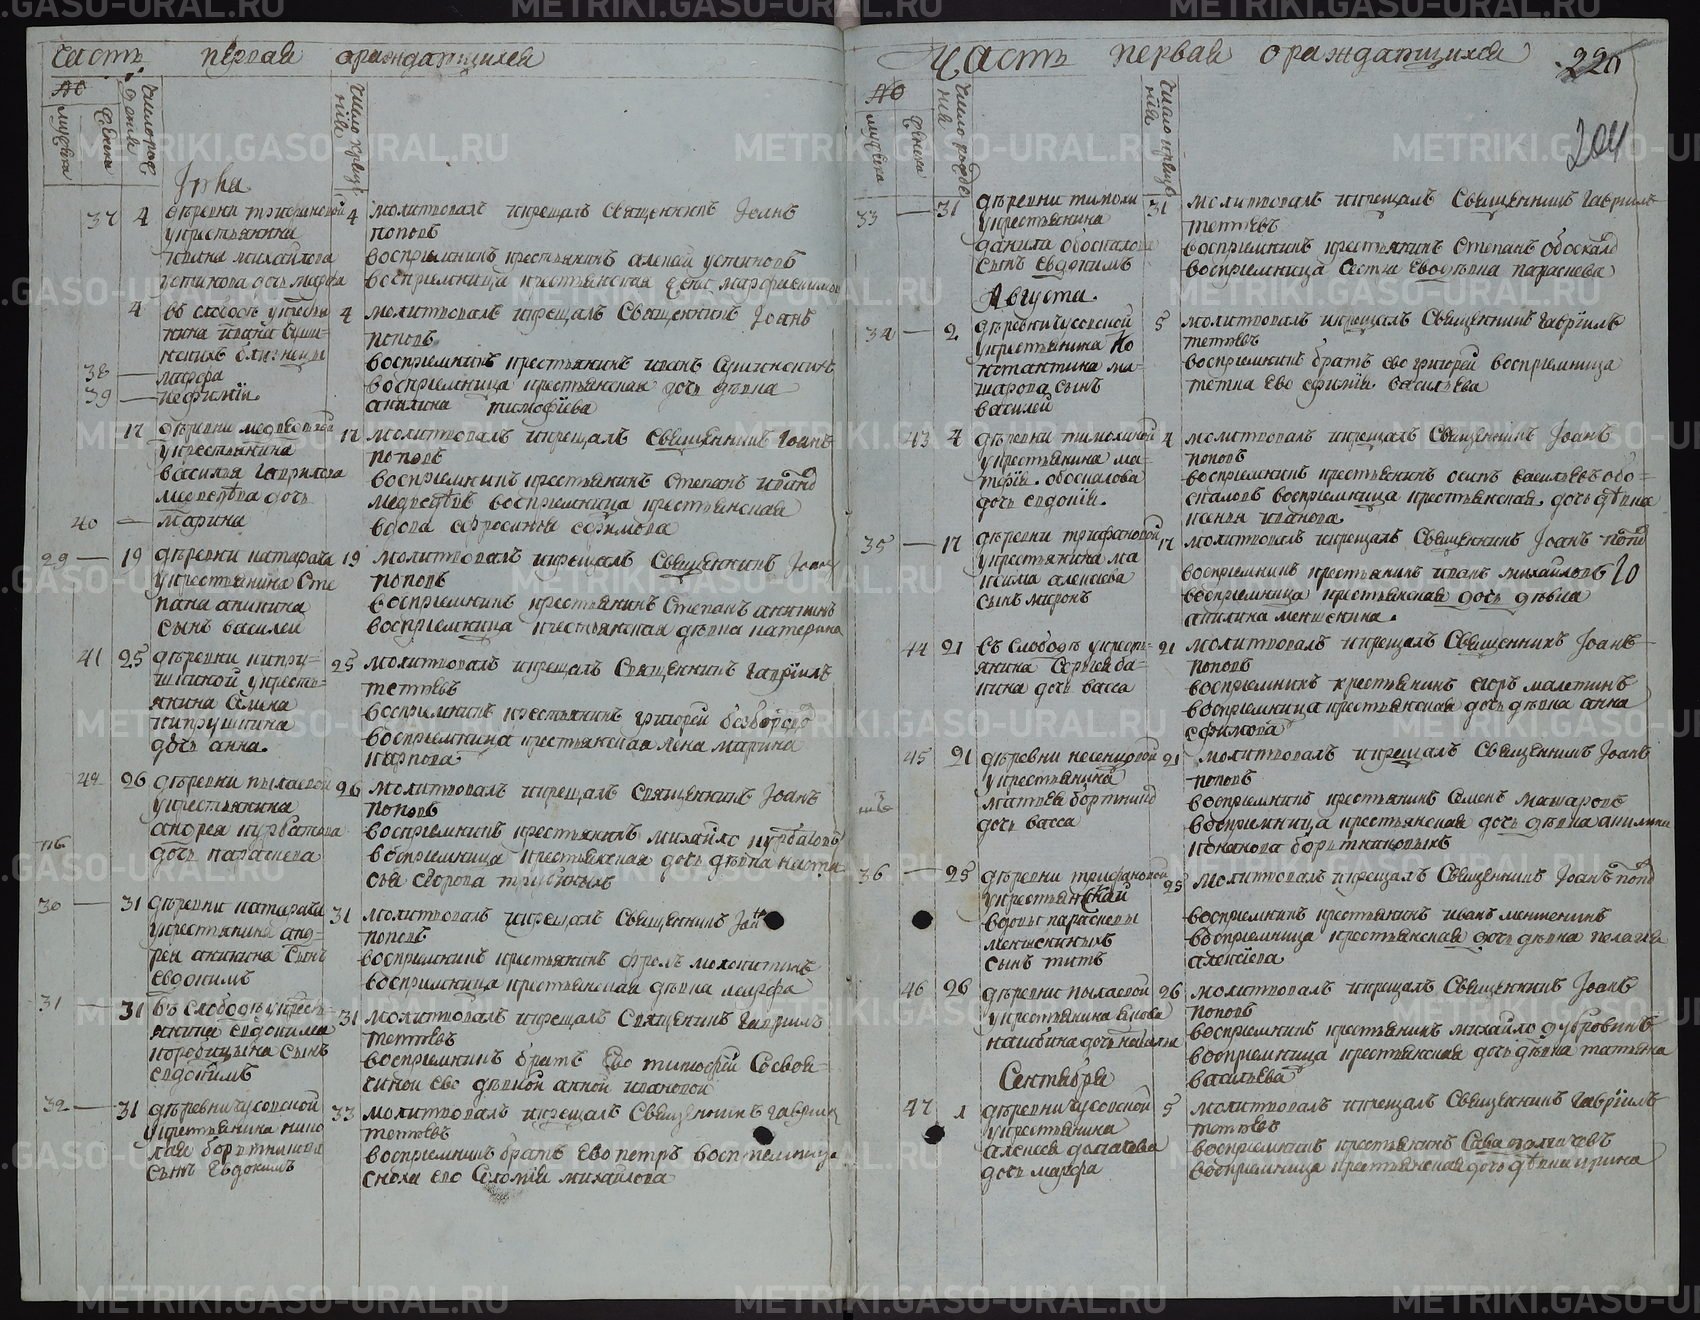 Часть первая ораждающихся
№
мужеска
женска
число рождения
число крещения
Июля
37 4 4
деревни трифановой
укрестьянина
михайлова
устинова дочь марфа
молитвовалъ икрещалъ Священникъ Иоанъ
поповъ
восприемникъ крестьянинъ алексей устиновъ
восприемница крестьянская
4 4
въ слободе укресть
янина ивана
близнецы
38 — марфа
39 — иефимия
молитвовалъ икрещалъ Священникъ Иоанъ
поповъ
восприемникъ крестьянинъ иванъ
восприемница крестьянская дочь девка
акилина тимофиева
17 17
деревни медведевой
укрестьянина
василья гаврилова
медведева дочь
40 — марина
молитвовалъ икрещалъ Священникъ Иоанъ
поповъ
восприемникъ крестьянинъ Степанъ ивановъ
медведевъ восприемница крестьянская
вдова ефросинья ефимова
29 — 19 19
деревни катарача
укрестьянина Сте
пана аникина
сынъ василей
молитвовалъ икрещалъ Священникъ Иоанъ
поповъ
восприемникъ крестьянинъ Степанъ аникинъ
восприемница крестьянская девка катерина
41 25 25
деревни кипру-
шкиной укресть-
янина
кипрушкина
дочь анна.
молитвовалъ икрещалъ Священникъ Гаврiилъ
тетюевъ
восприемникъ крестьянинъ григорей безбородо
восприемница крестьянская жена марина
карпова
42 26 26
деревни пылаевой
укрестьянина
андрея курбатова
дочь параскева
молитвовалъ икрещалъ Священникъ Иоанъ
поповъ
восприемникъ крестьянинъ михайло курбатовъ
восприемница крестьянская дочь девка наста
сья егорова трубиныхъ
30 — 31 31
деревни катарача
укрестьянина анд-
рея аникина сынъ
евдокимъ
молитвовалъ икрещалъ Священникъ
поповъ
восприемникъ крестьянинъ фролъ
восприемница крестьянская девка марфа
31 — 31 31
въ слободе укресть-
янина евдокима
коробицына сынъ
евдокимъ
молитвовалъ икрещалъ Священникъ Гаврилъ
тетюевъ
восприемникъ братъ Ево тимофей Сосвоя-
чиной ево девкой анной ивановой
32 — 31 33
деревни чусовской
укрестьянина нико
лая бортникова
сынъ Евдокимъ
молитвовалъ икрещалъ Священникъ Гаврилъ
тетюевъ
восприемникъ братъ Ево петръ восприемница
сноха ево Соломия михайлова
Часть первая ораждающихся
220
204
№
мужеска
женска
число рожде
ния
число креще
ния
33 — 31 31
деревни тимохи
укрестьянина
данила обоскалова
сынъ евдокимъ
молитвовалъ икрещалъ Священникъ Гаврилъ
тетюевъ
восприемникъ крестьянинъ Степанъ обоскало
восприемница Сестра Евдокима параскева
Августа.
34 — 2 5
деревни чусовской
укрестьянина Ко
нстантина ма-
шарова сынъ
василей
молитвовалъ икрещалъ Священникъ Гаврiилъ
тетюевъ
восприемникъ братъ ево григорей восприемница
тетка Ево ефимия васильева
43 4 4
деревни тимохиной
укрестьянина ма-
обоскалова
дочь евдокия.
молитвовалъ икрещалъ Священникъ Иоанъ
поповъ
восприемникъ крестьянинъ осипъ васильевъ обо-
скаловъ восприемница крестьянская дочь девка
ксенья иванова.
35 — 17 17
деревни трифановой
укрестьянина ма
ксима алексеева
сынъ миронъ
молитвовалъ икрещалъ Священникъ Иоанъ попо
восприемникъ крестьянинъ иванъ михайловъ
восприемница крестьянская дочь девка
акилина меншенина.
44 21 21
въ слободе укресть-
янина Сергея ба-
кина дочь васса
молитвовалъ икрещалъ Священникъ Иоанъ
поповъ
восприемникъ крестьянинъ егоръ малетинъ
восприемница крестьянская дочь девка анна
ефимова
45 21 21
деревни
укрестьянина
матвея бортнико
дочь васса
молитвовалъ икрещалъ Священникъ Иоанъ
поповъ
восприемникъ крестьянинъ Семенъ машаровъ
восприемница крестьянская дочь девка акилина
кононова бортниковыхъ
36 — 25 25
деревни трифановой
укрестьянской
вдовы параскевы
меншениныхъ
сынъ титъ
молитвовалъ икрещалъ Священникъ Иоанъ попо
восприемникъ крестьянинъ иванъ меншенинъ
восприемница крестьянская дочь девка пелагия
алексiева
46 26 26
деревни пылаевой
укрестьянина якова
дочь наталья
молитвовалъ икрещалъ Священникъ Иоанъ
поповъ
восприемникъ крестьянинъ михайло дубровинъ
восприемница крестьянская дочь девка татьяна
васильева
Сентября
47 1 5
деревни чусовской
укрестьянина
алексея долматова
дочь марфа
молитвовалъ икрещалъ Священникъ Гаврiилъ
тетюевъ
восприемникъ крестьянинъ Сава
восприемница крестьянская дочь девка ирина
METRIKI.GASO-URAL.RU